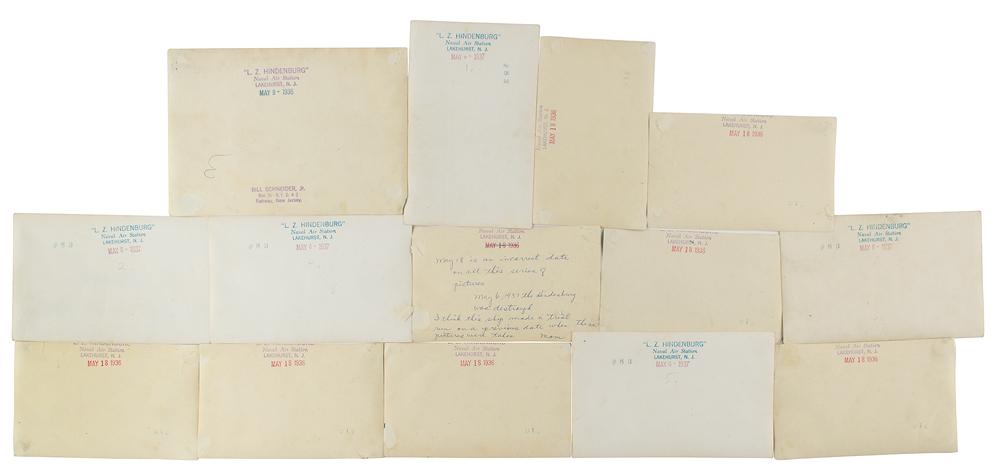 "L. Z. HINDENBURG"
Naval Air Station
LAKEHURST, N. J.
MAY 9 - 1936
BILL SCHNEIDER, Jr.
Rahway, New Jersey.
"L. Z. HINDENBURG"
Naval Air Station
LAKEHURST, N. J.
MAY 1937
1.
Naval Air Station
LAKEHURST, N. J.
MAY 18 1936
Naval Air Station
LAKEHURST, N. J.
MAY 18 1936
"L. Z. HINDENBURG"
Naval Air Station
LAKEHURST, N. J.
MAY 6 - 1937
2
"L. Z. HINDENBURG"
Naval Air Station
LAKEHURST, N. J.
MAY 6 - 1937
Naval Air Station
LAKEHURST, N. J.
MAY 18 1936
May 18 is an incorrect date
on all this series of
pictures
May 6, 1937 the Hindenburg
was destroyed
I think this ship made a trial
run on a previous date when these
pictures were taken Mom
Naval Air Station
LAKEHURST, N. J.
MAY 18 1936
"L. Z. HINDENBURG"
Naval Air Station
LAKEHURST, N. J.
MAY 6 - 1937
Naval Air Station
LAKEHURST, N. J.
MAY 18 1936
Naval Air Station
LAKEHURST, N. J.
MAY 18 1936
Naval Air Station
LAKEHURST, N. J.
MAY 18 1936
"L. Z. HINDENBURG"
Naval Air Station
LAKEHURST, N. J.
MAY 6 - 1937
Naval Air Station
LAKEHURST, N. J.
MAY 18 1936